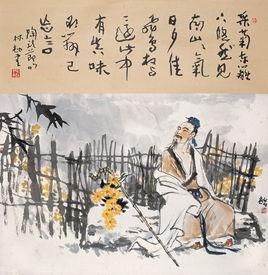 采菊东篱
下悠然见
南山山气
日夕佳
飞鸟相
与还此中
有真味
欲辨已
忘言